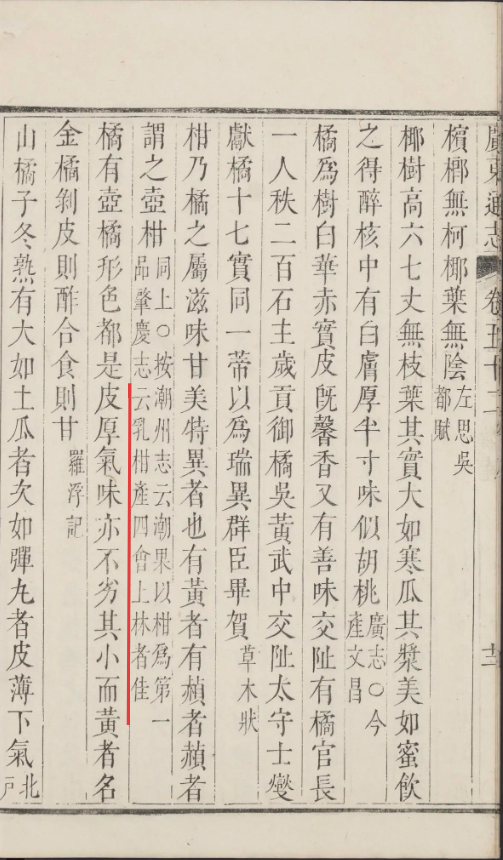 廣東通志 卷五十二
檳榔無柯椰葉無陰左思吳都賦
椰樹高六七丈無枝葉其實大如寒瓜其漿美如蜜飲
之得醉核中有白膚厚半寸味似胡桃廣志○今產文昌
橘爲樹白華赤實皮旣馨香又有善味交阯有橘官長
一人秩二百石主歲貢御橘吳黃武中交阯太守士燮
獻橘十七實同一蒂以爲瑞異群臣畢賀草木狀
柑乃橘之屬滋味甘美特異者也有黃者有赬者赬者
謂之壺柑同上○按潮州志云潮果以柑爲第一品肇慶志云乳柑產四會上林者佳
橘有壺橘形色都是皮厚氣味亦不劣其小而黃者名
金橘剝皮則酢合食則甘羅浮記
山橘子冬熟有大如土瓜者次如彈丸者皮薄下氣北戶